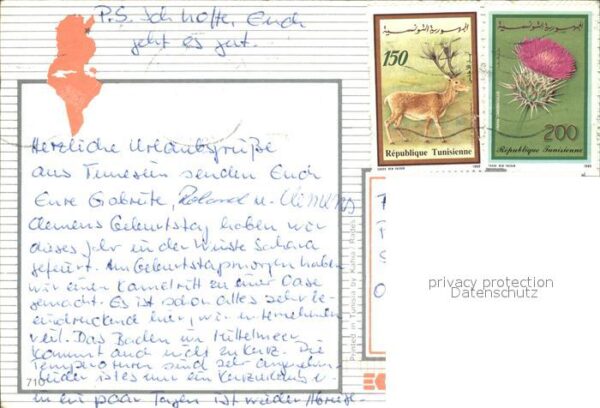 P.S. Ich hoffe, Euch
geht es gut.
الجمهورية التونسية
150
République Tunisienne
الجمهورية التونسية
200
République Tunisienne
Herzliche Urlaubsgrüße
aus Tunesien senden Euch
Eure Gabriele, Roland u. Clemens
Clemens Geburtstag haben wir
dieses Jahr in der Wüste Sahara
gefeiert. Am Geburtstagsmorgen haben
wir einen Kamelritt zu einer Oase
gemacht. Es ist schon alles sehr be-
eindruckend hier, wir unternehmen
viel. Das Baden im Mittelmeer
kommt auch nicht zu kurz. Die
Temperaturen sind sehr angenehm
leider ist es nur ein Kurzurlaub u.
in ein paar Tagen ist wieder
Printed in Tunisia by Kahia - Rades
privacy protection
Datenschutz
710